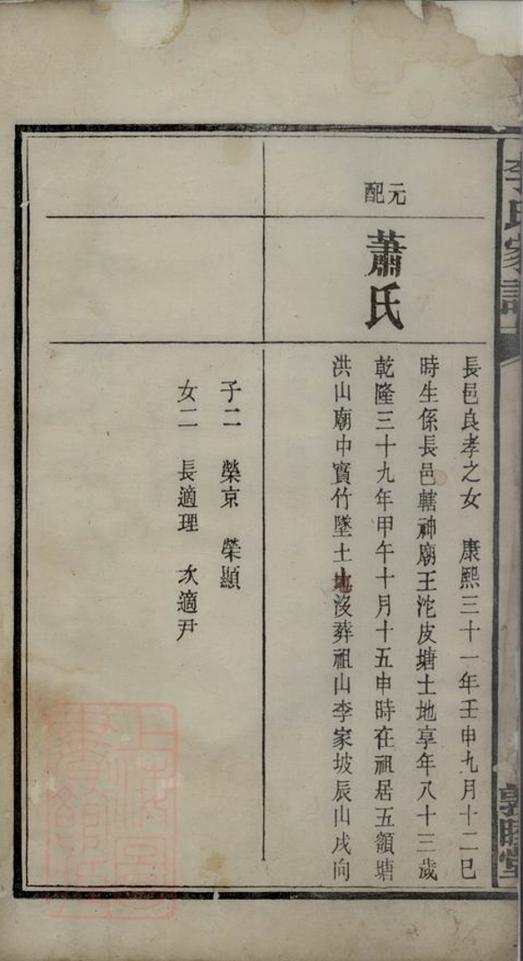 李氏家譜
元配
蕭氏
長邑良孝之女 康熙三十一年壬申九月十二巳
時生係長邑轄神廟王沱皮塘土地享年八十三歲
乾隆三十九年甲午十月十五申時在祖居五額塘
洪山廟中寳竹墜土地沒葬祖山李家坡辰山戌向
子二 榮京 榮顯
女二 長適理 次適尹
敦睦堂